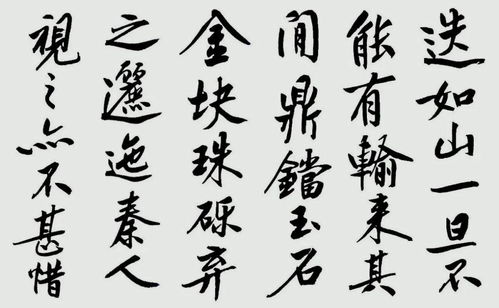 迭如山一旦不
能有輸来其
间鼎鐺玉石
金块珠砾弃
之邐迤秦人
視之亦不甚惜